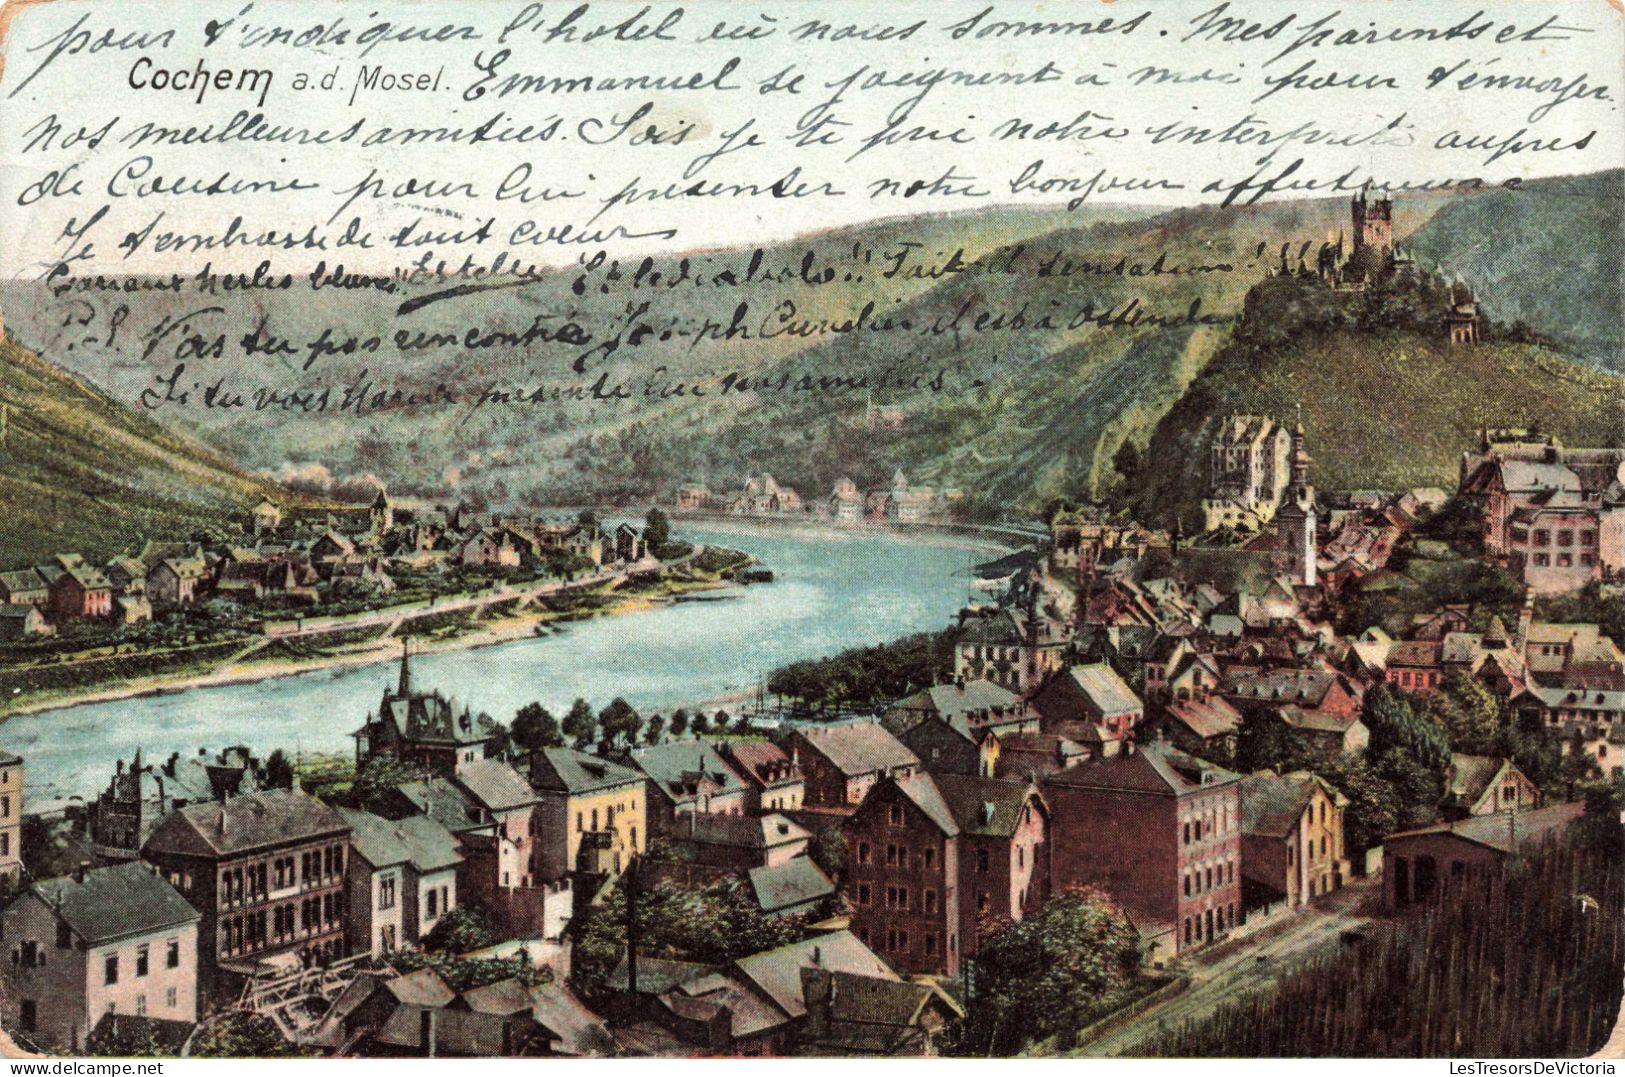 pour t'indiquer l'hotel où nous sommes. Mes parents et
Cochem a.d. Mosel.
Emmanuel se joignent à moi pour t'envoyer
nos meilleures amitiés. Sois je te prie notre interprète aupres
de Cousine pour lui présenter notre bonjour affectueux
Je t'embrasse de tout coeur
merles blancs!! Estelle Et le diabolo!! Fait-il sensation!
P.-S. N'as tu pas rencontré Joseph il est à Ostende
Si tu vois Maria présente lui mes amitiés.
LesTresorsDeVictoria